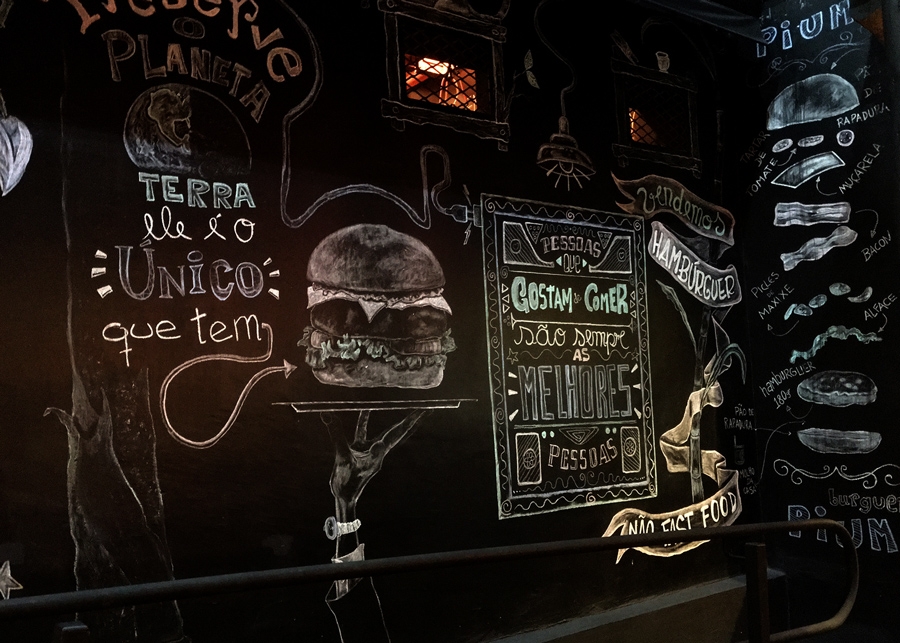 Preserve
O
PLANETA
TERRA
ele é o
ÚNICO
que tem
PESSOAS
QUE
GOSTAM DE COMER
são sempre
AS
MELHORES
PESSOAS
Vendemos
HAMBÚRGUER
NÃO FAST FOOD
PIUM
PÃO
DE
RAPADURA
TOMATE
MUÇARELA
BACON
PICLES
DE
MAXIXE
ALFACE
HAMBÚRGUER
180g
PÃO DE
RAPADURA
burguer
PIUM